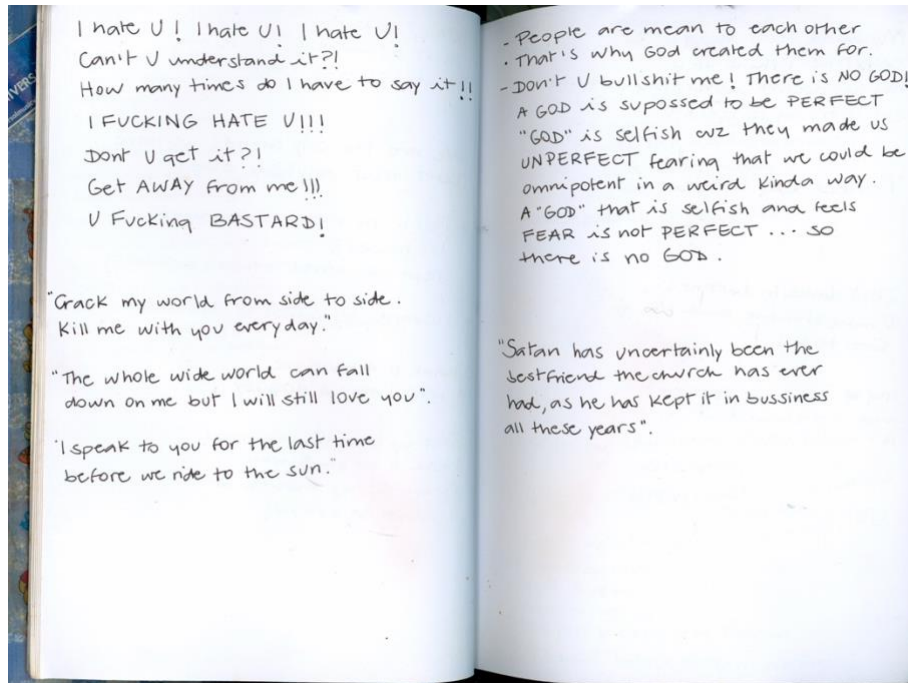 I hate U! I hate U! I hate U!
Can't U understand it?!
How many times do I have to say it!!
I FUCKING HATE U!!!
Dont U get it?!
Get AWAY from me!!!
U Fucking BASTARD!
"Crack my world from side to side.
Kill me with you everyday."
"The whole wide world can fall
down on me but I will still love you".
"I speak to you for the last time
before we ride to the sun."
- People are mean to each other
. That's why God created them for.
- Don't U bullshit me! There is NO GOD!
A GOD is supossed to be PERFECT
"GOD" is selfish cuz they made us
UNPERFECT fearing that we could be
omnipotent in a weird kinda way.
A "GOD" that is selfish and feels
FEAR is not PERFECT ... so
there is no GOD.
"Satan has uncertainly been the
bestfriend the church has ever
had, as he has kept it in bussiness
all these years".